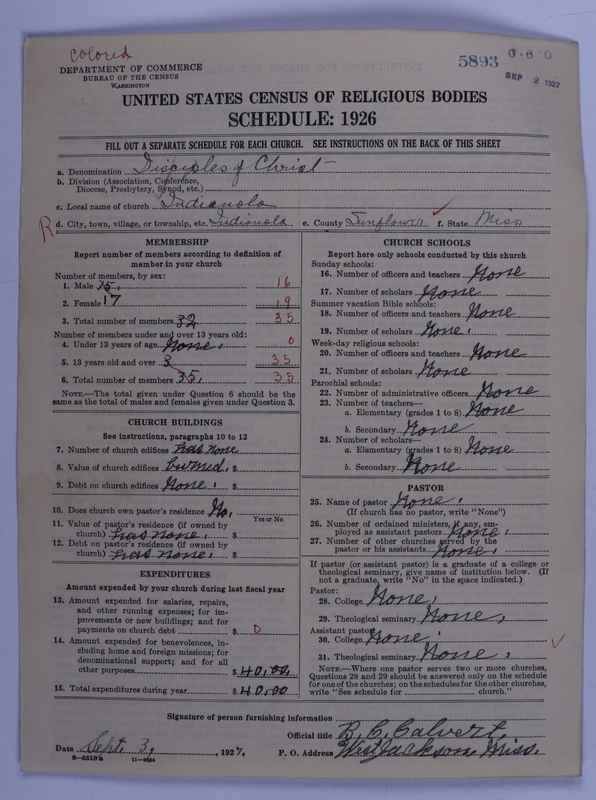 colored
DEPARTMENT OF COMMERCE
BUREAU OF THE CENSUS
WASHINGTON
5893
0-6-0
SEP 2 1927
UNITED STATES CENSUS OF RELIGIOUS BODIES
SCHEDULE: 1926
FILL OUT A SEPARATE SCHEDULE FOR EACH CHURCH. SEE INSTRUCTIONS ON THE BACK OF THIS SHEET
a. Denomination Disciples of Christ
b. Division (Association, Conference,
Diocese, Presbytery, Synod, etc.)
c. Local name of church Indianola
R d. City, town, village, or township, etc. Indianola e. County Sunflower f. State Miss
MEMBERSHIP
Report number of members according to definition of
member in your church
Number of members, by sex:
1. Male 15. 16
2. Female 17 19
3. Total number of members 32 35
Number of members under and over 13 years old:
4. Under 13 years of age None. 0
5. 13 years old and over 3 35
6. Total number of members 35. 35
NOTE.—The total given under Question 6 should be the
same as the total of males and females given under Question 3.
CHURCH BUILDINGS
See instructions, paragraphs 10 to 12
7. Number of church edifices has none
8. Value of church edifices burned. $
9. Debt on church edifices None. $
10. Does church own pastor's residence No.
Yes or No
11. Value of pastor's residence (if owned by
church) has none. $
12. Debt on pastor's residence (if owned by
church) has none. $
EXPENDITURES
Amount expended by your church during last fiscal year
13. Amount expended for salaries, repairs,
and other running expenses; for im-
provements or new buildings; and for
payments on church debt $ 0
14. Amount expended for benevolences, in-
cluding home and foreign missions; for
denominational support; and for all
other purposes $ 40.00
15. Total expenditures during year $ 40.00
CHURCH SCHOOLS
Report here only schools conducted by this church
Sunday schools:
16. Number of officers and teachers None
17. Number of scholars None
Summer vacation Bible schools:
18. Number of officers and teachers None
19. Number of scholars None.
Week-day religious schools:
20. Number of officers and teachers None
21. Number of scholars None
Parochial schools:
22. Number of administrative officers None
23. Number of teachers—
a. Elementary (grades 1 to 8) None
b. Secondary None
24. Number of scholars—
a. Elementary (grades 1 to 8) None
b. Secondary None
PASTOR
25. Name of pastor None.
(If church has no pastor, write "None")
26. Number of ordained ministers, if any, em-
ployed as assistant pastors None.
27. Number of other churches served by the
pastor or his assistants None.
If pastor (or assistant pastor) is a graduate of a college or
theological seminary, give name of institution below. (If
not a graduate, write "No" in the space indicated.)
Pastor:
28. College None.
29. Theological seminary None.
Assistant pastor:
30. College None.
31. Theological seminary None.
NOTE.—Where one pastor serves two or more churches,
Questions 28 and 29 should be answered only on the schedule
for one of the churches; on the schedules for the other churches,
write "See schedule for church."
Signature of person furnishing information
B. C. Calvert.
Official title
Date Sept. 3, 1927. P. O. Address West Jackson, Miss.
8-5518a 11-9024